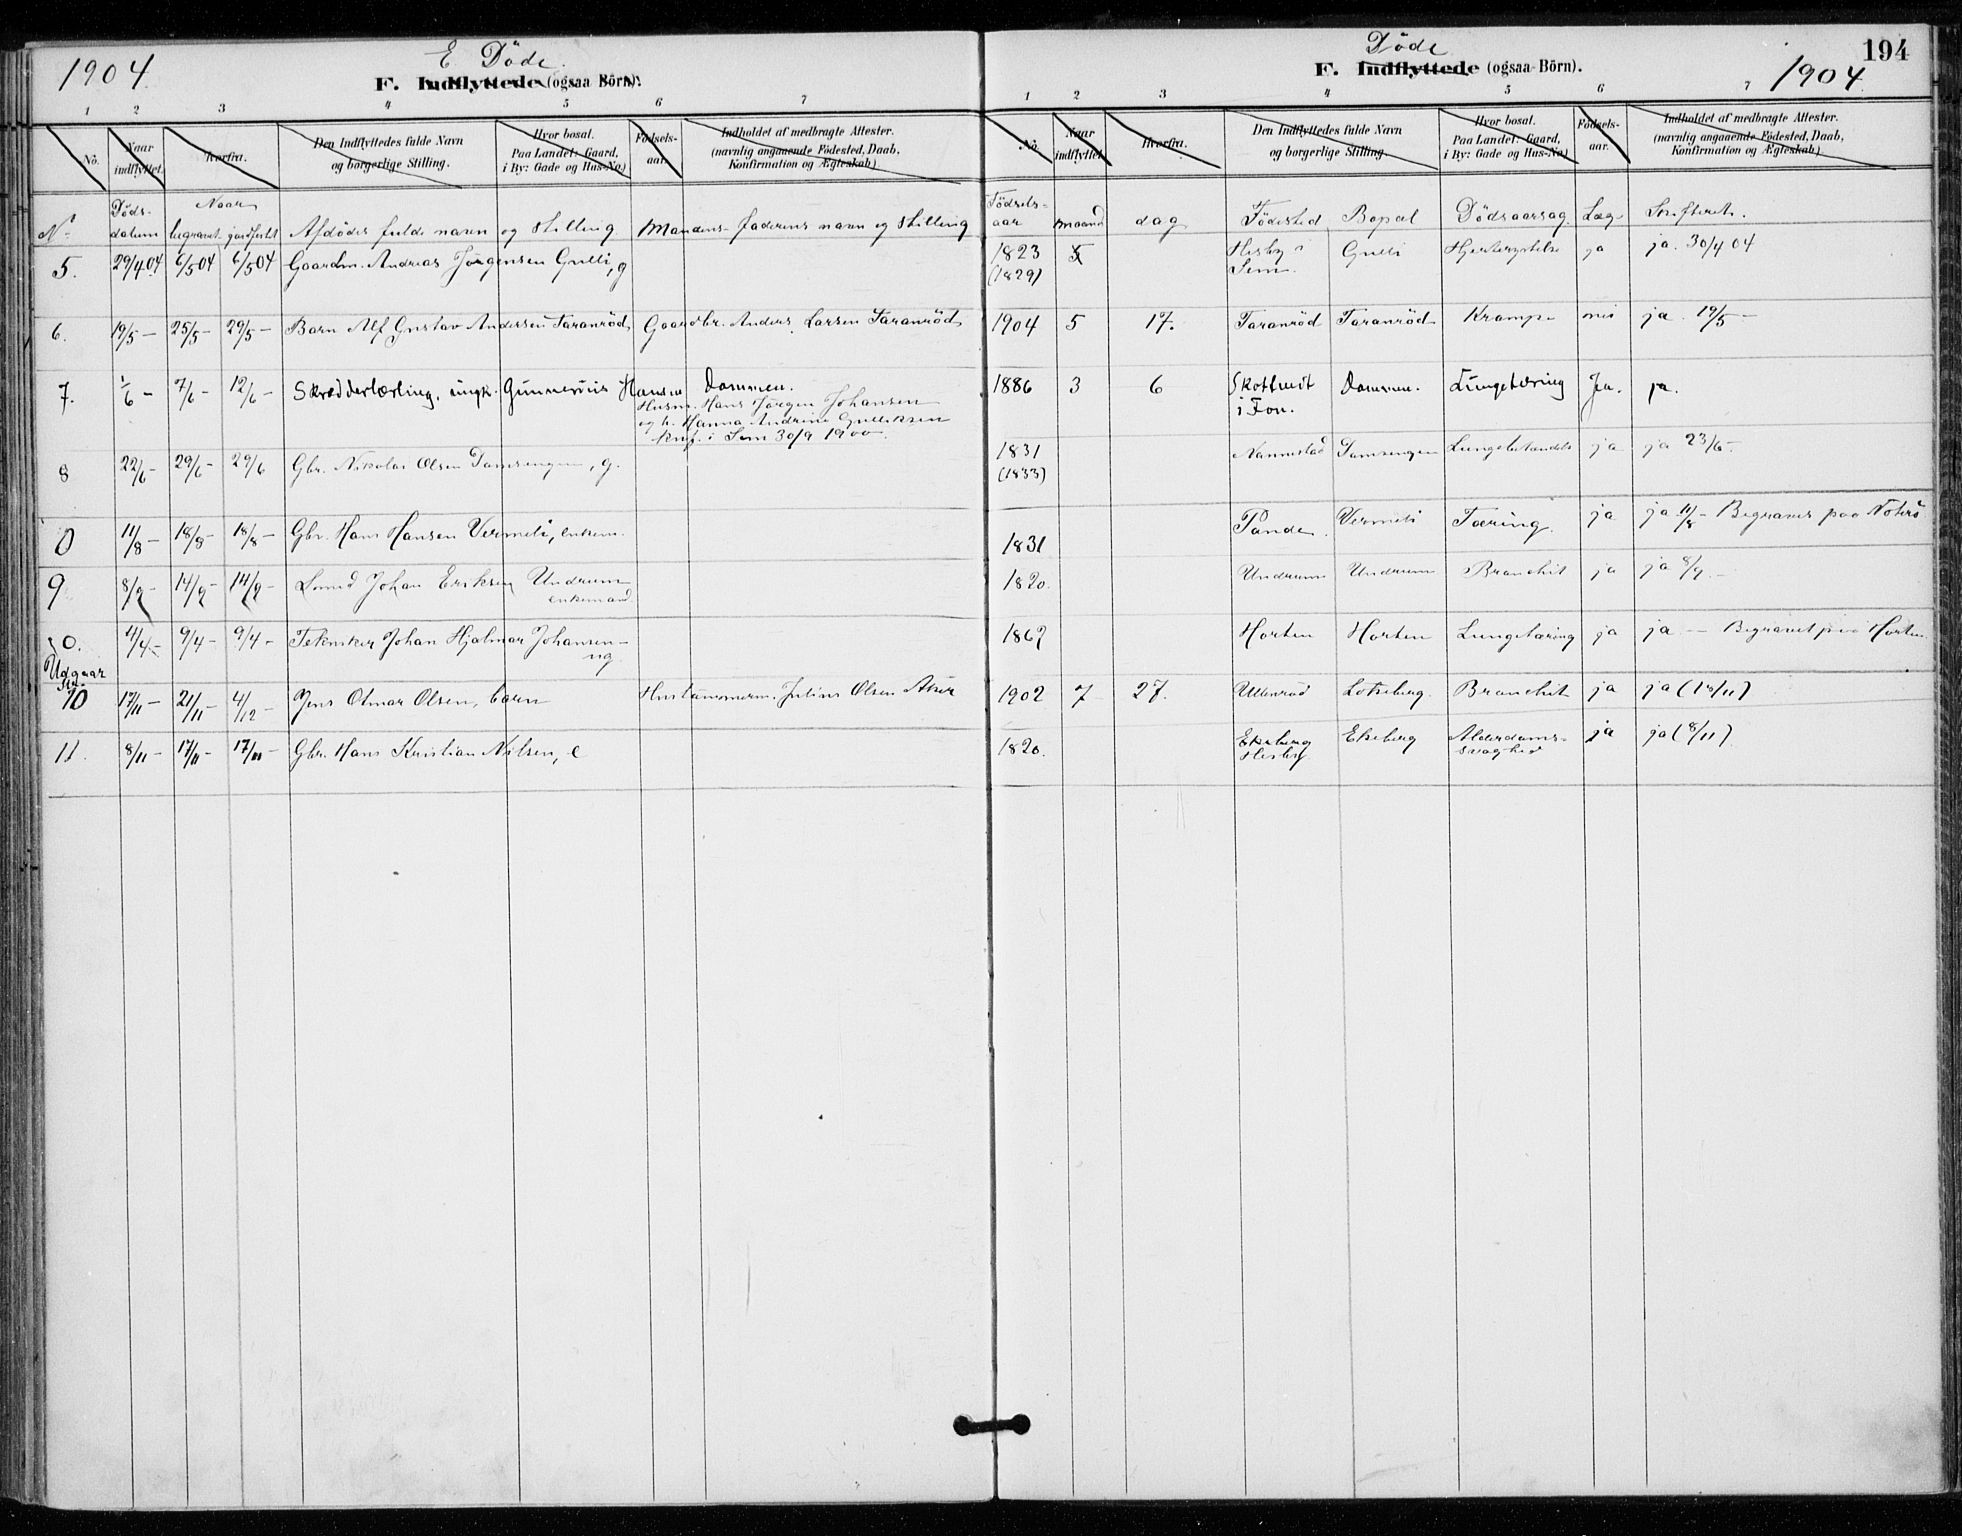 1904.
E Döde.
F. Indflyttede (ogsaa Börn).
1 2 3 4 5 6 7
No. Naar indflyttet. Hvorfra. Den Indflyttedes fulde Navn og borgerlige Stilling. Hvor bosat. Paa Landet: Gaard, i By: Gade og Hus-No.) Fødsels-aar. Indholdet af medbragte Attester. (navnlig angaaende Födested, Daab, Konfirmation og Ægteskab)
N. Döds-datum Naar begravet jordfestet Afdødes fulde navn og stilling. Mandens- faderens navn og stilling
5. 29/4 04 6/5 04 6/5 04 Gaardm. Andreas Jörgensen Gulli, g
6. 19/5 – 25/5 – 29/5 – Barn Alf Gustav Andersen Taranröd, Gaardbr. Anders Larsen Taranröd
7. 1/6 – 7/6 – 12/6 – Skrædderlærling, ungk. Gunnerius Hansen Dammen.
Husm. Hans Jörgen Johansen
og h. Hanna Andrine Gulliksen
knf. i Sem 30/9 1900.
8 22/6 – 29/6 – 29/6 Gbr. Nikolai Olsen Damsengen, g.
0 11/8 – 18/8 – 18/8 – Gbr. Hans Hansen Vermeli, enkem.
9 8/9 – 14/9 – 14/9 – Johan Eriksen Undrum
enkemand
0. 4/4 – 9/4 – 9/4 – Tekniker Johan Hjalmar Johansen –
ug.
Udgaar
10 17/11 – 21/11 – 4/12 – Jens Otmar Olsen, barn Hustømmerm. Julius Olsen Aker
11. 8/11 – 17/11 – 17/11 – Gbr. Hans Kristian Nilsen, e
194
Döde
F. Indflyttede (ogsaa Börn).
1904.
1 2 3 4 5 6 7
No. Naar indflyttet. Hvorfra. Den Indflyttedes fulde Navn og borgerlige Stilling. Hvor bosat. Paa Landet: Gaard, i By: Gade og Hus-No.) Fødsels-aar. Indholdet af medbragte Attester. (navnlig angaaende Födested, Daab, Konfirmation og Ægteskab)
Födsels-aar maaned dag Födested Bopæl Dödsaarsag. Læge Skifteret.
1823 (1829) 5 Hesby i Sem. Gulli ja ja. 30/4 04
1904 5 17. Taranröd Taranröd Krampe nei ja. 19/5 –
1886 3 6 i Fon. Dammen. Lungetæring Ja. ja.
1831 (1833) Nannestad Damsengen Lungebetændelse ja ja 23/6 –
1831 Vermeli Tæring. ja ja 11/8 – Begraves paa Nöterö
1820. Undrum Undrum Bronchit ja ja 8/9 –
1867 Horten Horten Lungetæring ja ja – Begravet paa Horten
1902 7 27. Ullenröd Bronchit ja ja (18/11)
1820. Ekeberg Hesby Ekeberg Alderdoms-svaghed ja ja (8/11)